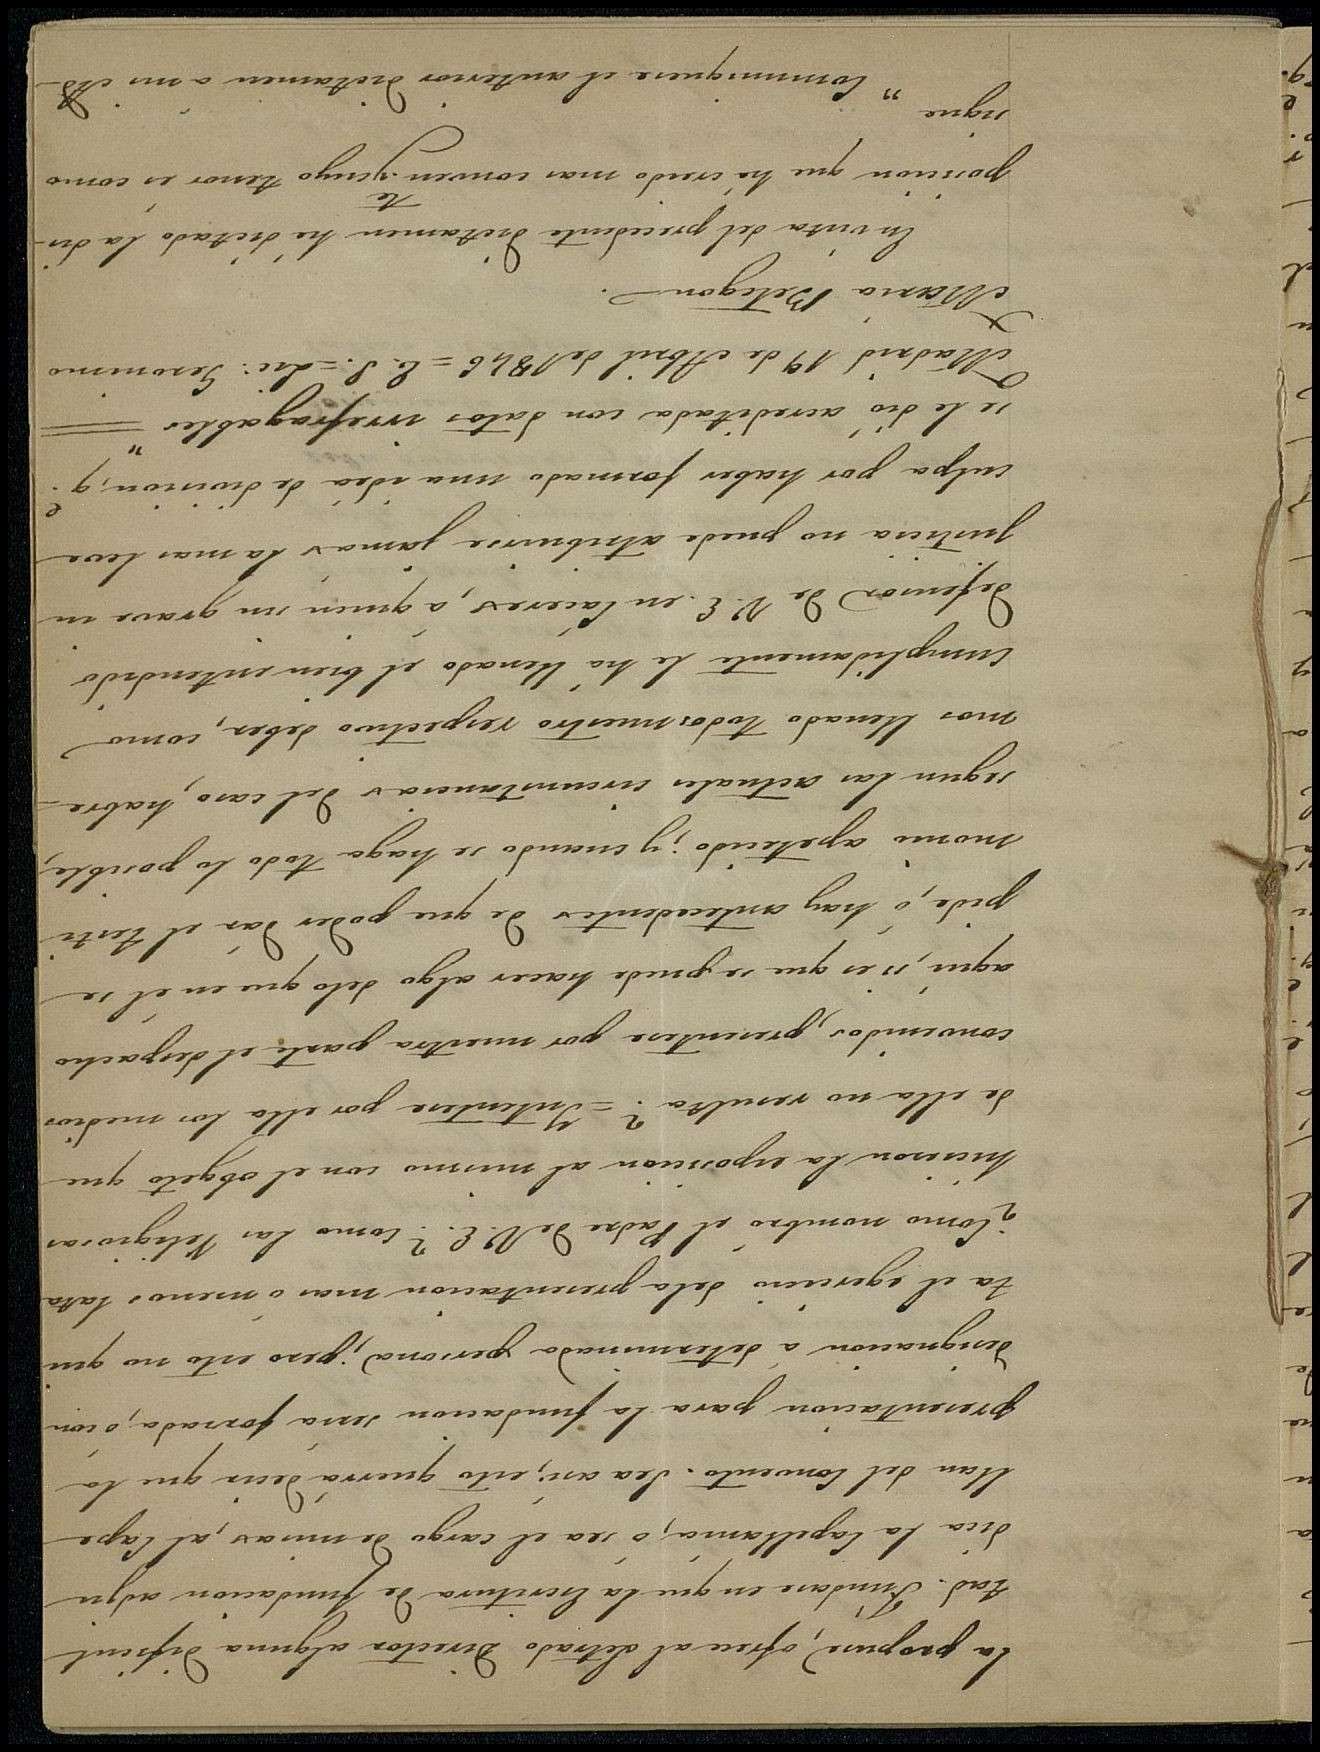 la propine, ofrece al Letrado Director alguna dificul
tad. Fúndase en que la Escritura de fundacion adju
dica la Capellania, ó sea el cargo de misas, al Cape
llan del Convento. Sea asi; esto querrá decir que la
presentacion para la fundacion será forzada, ó con
designacion á determinada persona; pero esto no qui
ta el egercicio dela presentacion mas ó menos lata
¿Como nombró el Padre de V.E.? Como las Religiosas
hicieron la esposicion al mismo con el obgeto que
de ella no resulta? = Intentese por ella los medios
convenidos, presentese por nuestra parte el despacho
aqui, si es que se puede hacer algo delo que en él se
pide, ó hay antecedentes de que poder dar el testi
monio apetecido; y cuando se haga todo lo posible,
segun las actuales circunstancias del caso, habre-
mos llenado todos nuestro respectivo deber, como
cumplidamente le ha llenado el bien entendido
defensor de V.E. en Caceres, á quien sin grave in
justicia no puede atribuirse jamas la mas leve
culpa por haber formado una idéa de division, q.e
se le dió acreditada con datos irrefragables"
Madrid 19 de Abril de 1846 = E. S. = Lic: Geronimo
Maria Betegon.
En vista del precedente dictamen he dictado la dis-
posicion que hé creido mas conven.te y cuyo tenor es como
sigue " Comuniquese el anterior dictamen á mi Ad-